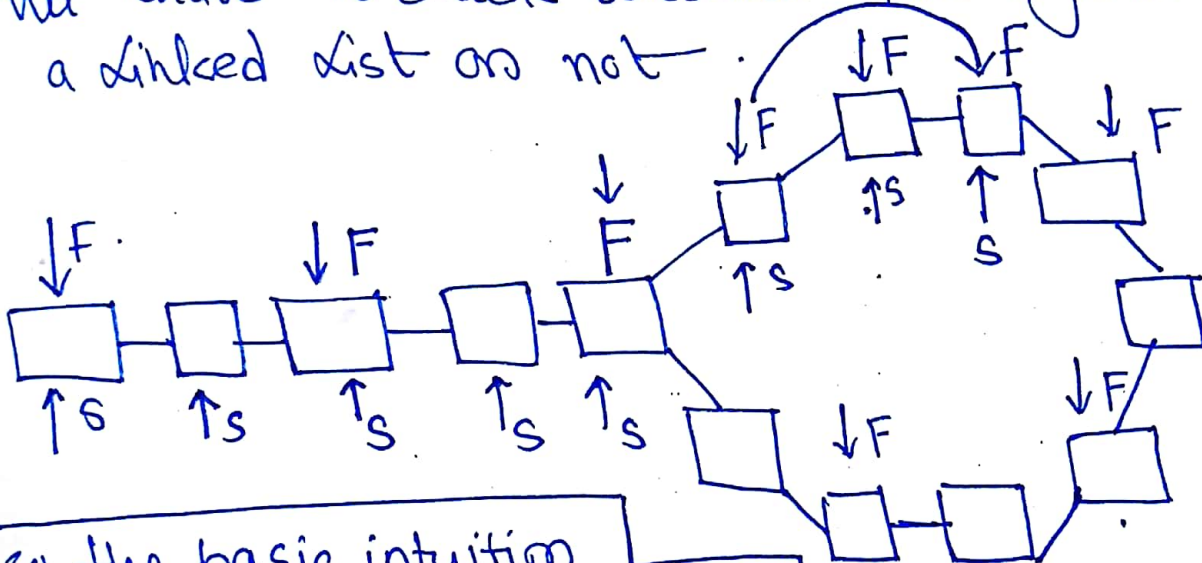 a Linked List or not
↓F ↓F
↓F ↓F
↓
F
↓F. ↓F
↑S ↑S
↑S
↑S ↑S ↑S ↑S ↑S
↓F ↓F
the basic intuition